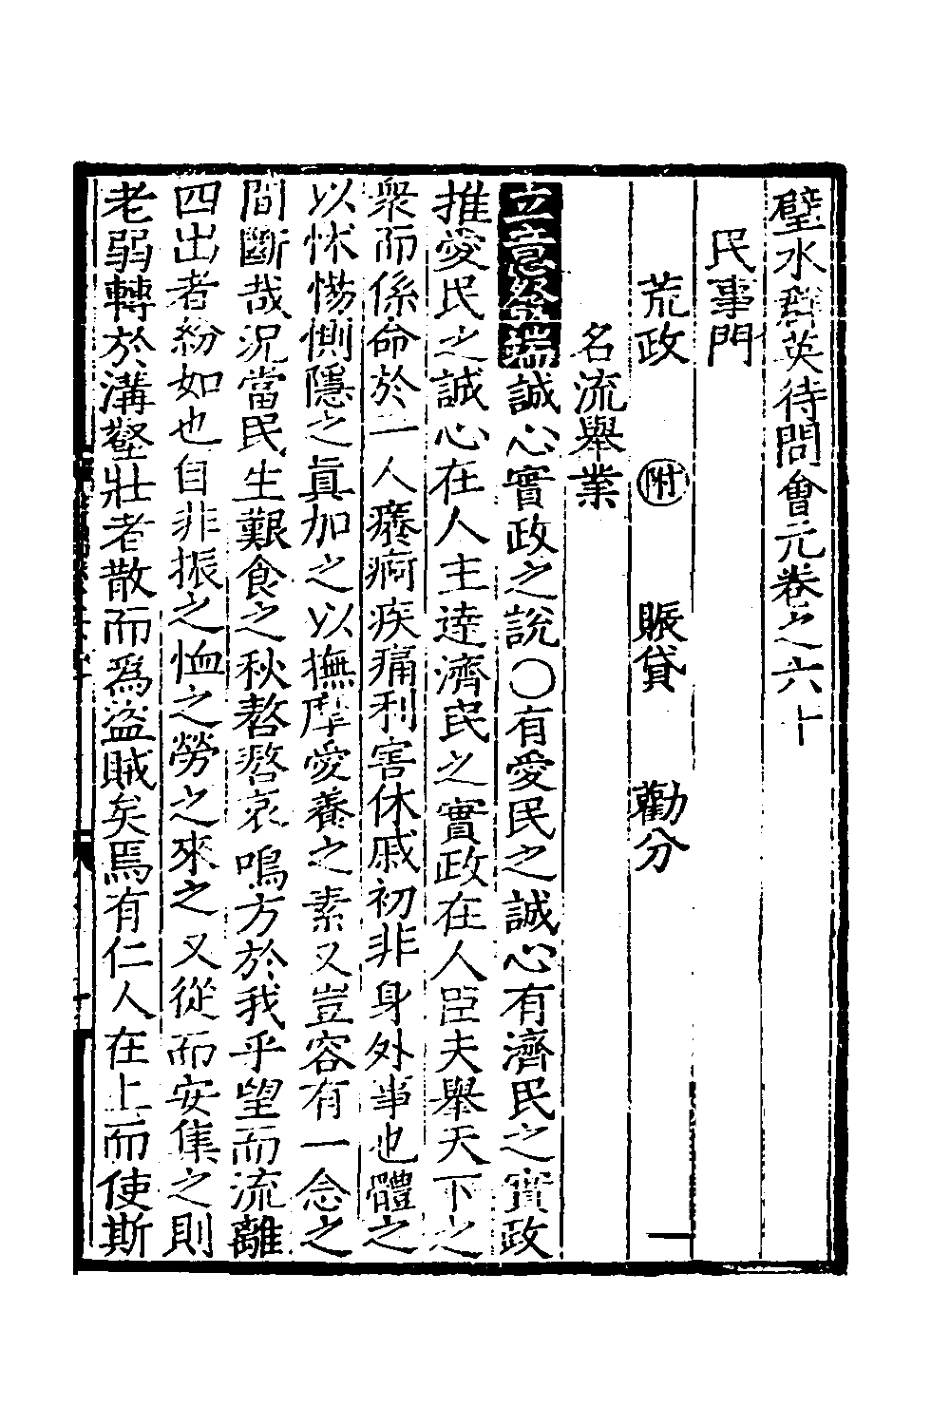 璧水群英待問會元卷之六十
民事門
荒政 附 賑貸 勸分 一
名流舉業
立意發端誠心實政之說○有愛民之誠心有濟民之實政
推愛民之誠心在人主達濟民之實政在人臣夫舉天下之
衆而係命於一人癢痾疾痛利害休戚初非身外事也體之
以怵惕惻隱之眞加之以撫摩愛養之素又豈容有一念之
間斷哉況當民生艱食之秋嗸嗸哀鳴方於我乎望而流離
四出者紛如也自非振之恤之勞之來之又從而安集之則
老弱轉於溝壑壯者散而爲盗賊矣焉有仁人在上而使斯